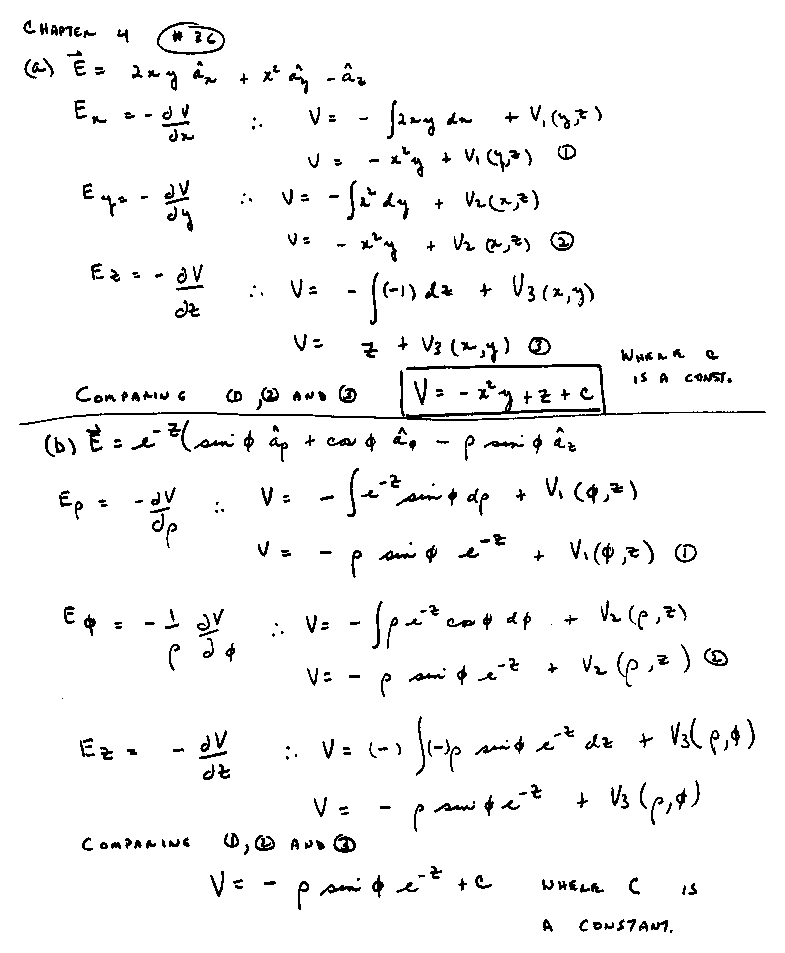 CHAPTER 4 #36
(a) $\vec{E} = 2xy \hat{a}_x + x^2 \hat{a}_y - \hat{a}_z$
$E_x = -\frac{\partial V}{\partial x}$ ∴ $V = -\int 2xy\,dx + V_1(y,z)$
$V = -x^2y + V_1(y,z)$ ①
$E_y = -\frac{\partial V}{\partial y}$ ∴ $V = -\int x^2 dy + V_2(x,z)$
$V = -x^2y + V_2(x,z)$ ②
$E_z = -\frac{\partial V}{\partial z}$ ∴ $V = -\int (-1) dz + V_3(x,y)$
$V = z + V_3(x,y)$ ③
COMPARING ①, ② AND ③ $V = -x^2y + z + c$ WHERE C IS A CONST.
(b) $\vec{E} = e^{-z}(\sin\phi\,\hat{a}_\rho + \cos\phi\,\hat{a}_\phi - \rho\sin\phi\,\hat{a}_z$
$E_\rho = -\frac{\partial V}{\partial \rho}$ ∴ $V = -\int e^{-z}\sin\phi\,d\rho + V_1(\phi,z)$
$V = -\rho\sin\phi\,e^{-z} + V_1(\phi,z)$ ①
$E_\phi = -\frac{1}{\rho}\frac{\partial V}{\partial \phi}$ ∴ $V = -\int \rho e^{-z}\cos\phi\,d\phi + V_2(\rho,z)$
$V = -\rho\sin\phi\,e^{-z} + V_2(\rho,z)$ ②
$E_z = -\frac{\partial V}{\partial z}$ ∴ $V = (-)\int (-)\rho\sin\phi\,e^{-z}dz + V_3(\rho,\phi)$
$V = -\rho\sin\phi\,e^{-z} + V_3(\rho,\phi)$
COMPARING ①, ② AND ③
$V = -\rho\sin\phi\,e^{-z} + c$ WHERE C IS
A CONSTANT.